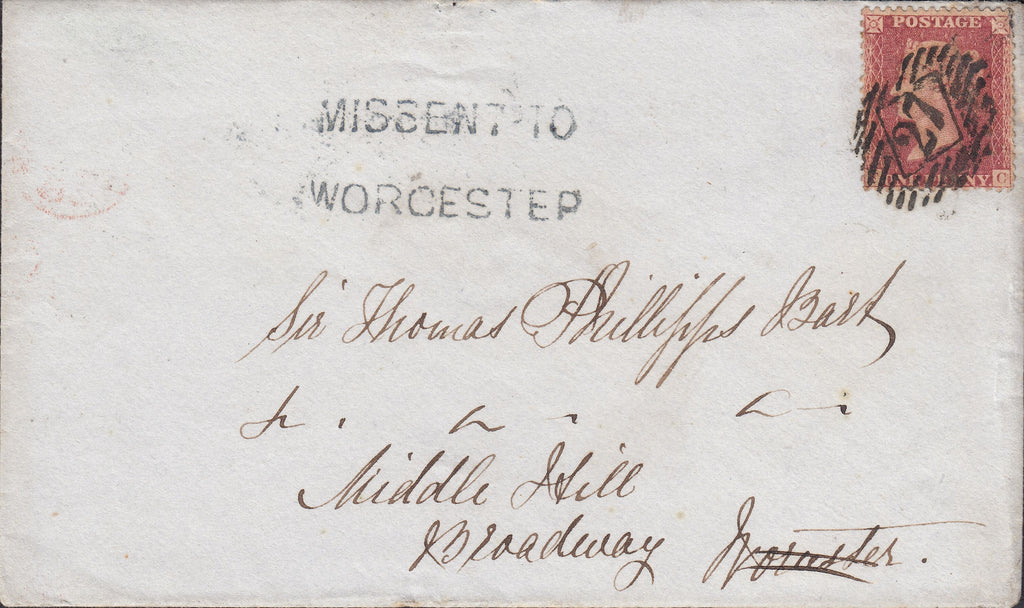 POSTAGE
27
C
MISSENT TO
WORCESTER
Sir Thomas Phillipps Bart
Middle Hill
Broadway Worcester.